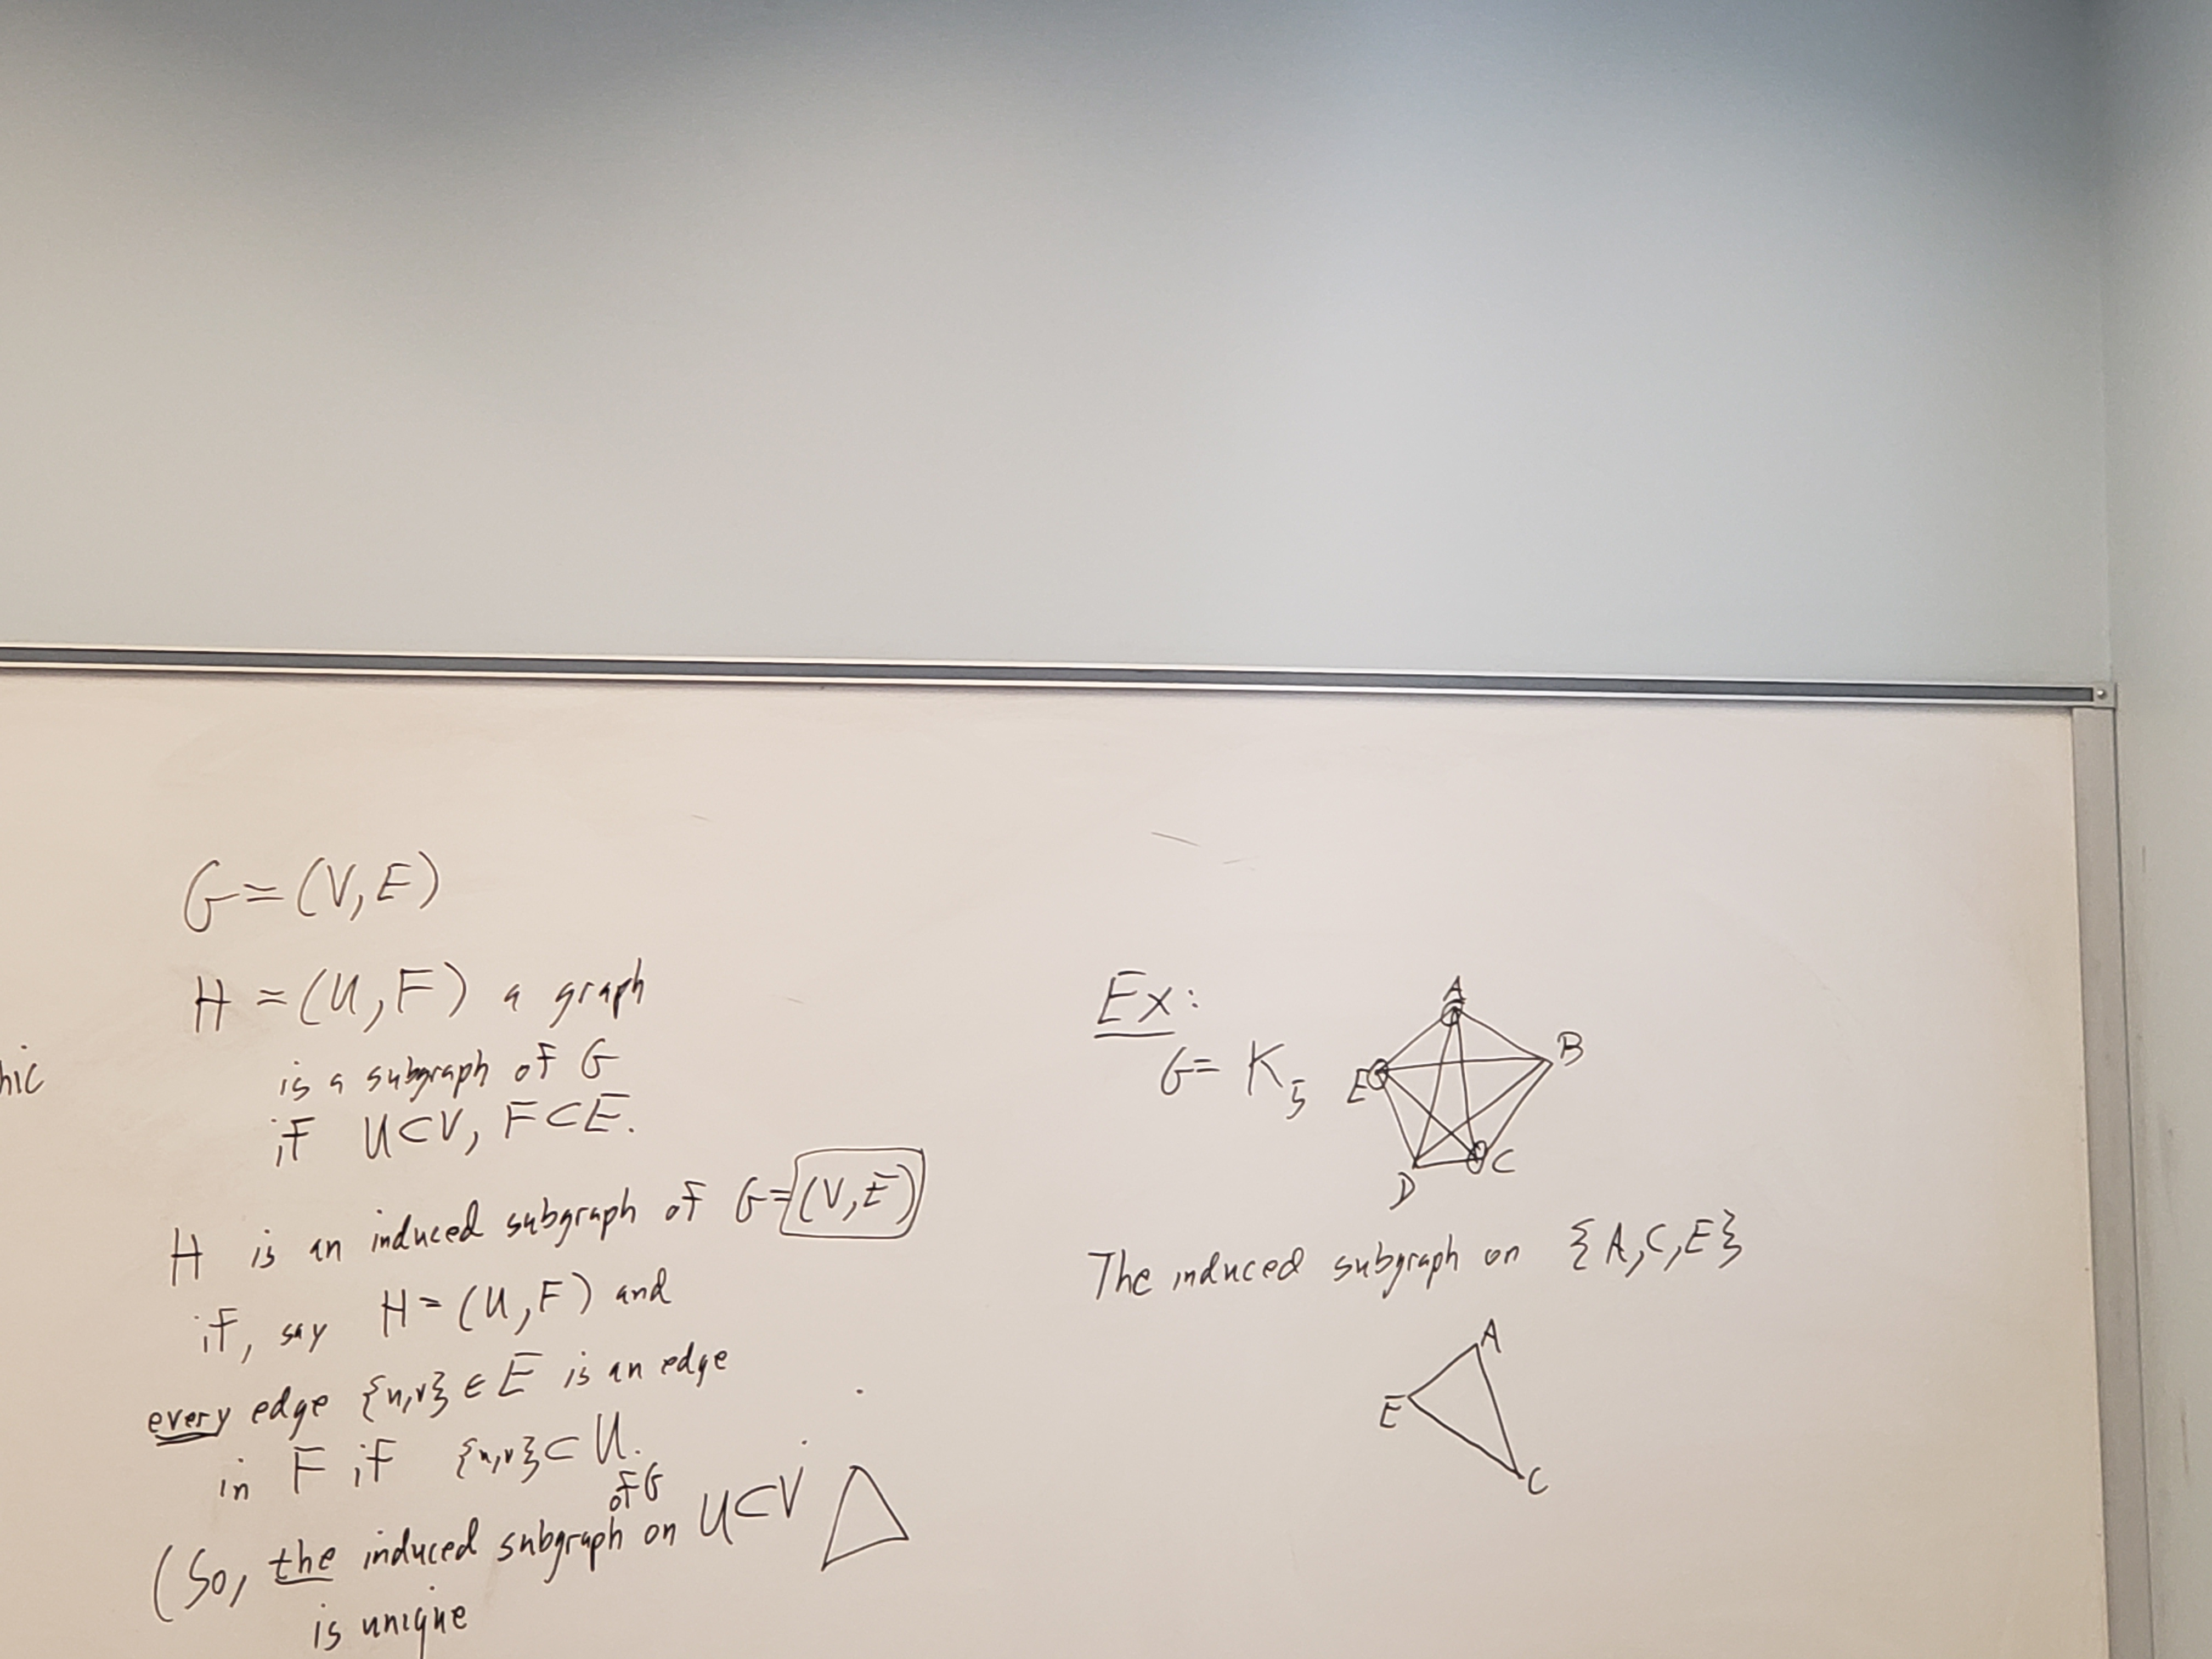 G=(V,E)
H=(U,F) a graph
is a subgraph of G
if U⊂V, F⊂E.
H is an induced subgraph of G=(V,E)
if, say H=(U,F) and
every edge {u,v}∈E is an edge
in F if {u,v}⊂U.
of G
(So, the induced subgraph on U⊂V
is unique
hic
Ex:
G= K5
A
B
E
C
D
The induced subgraph on {A,C,E}
A
E
C